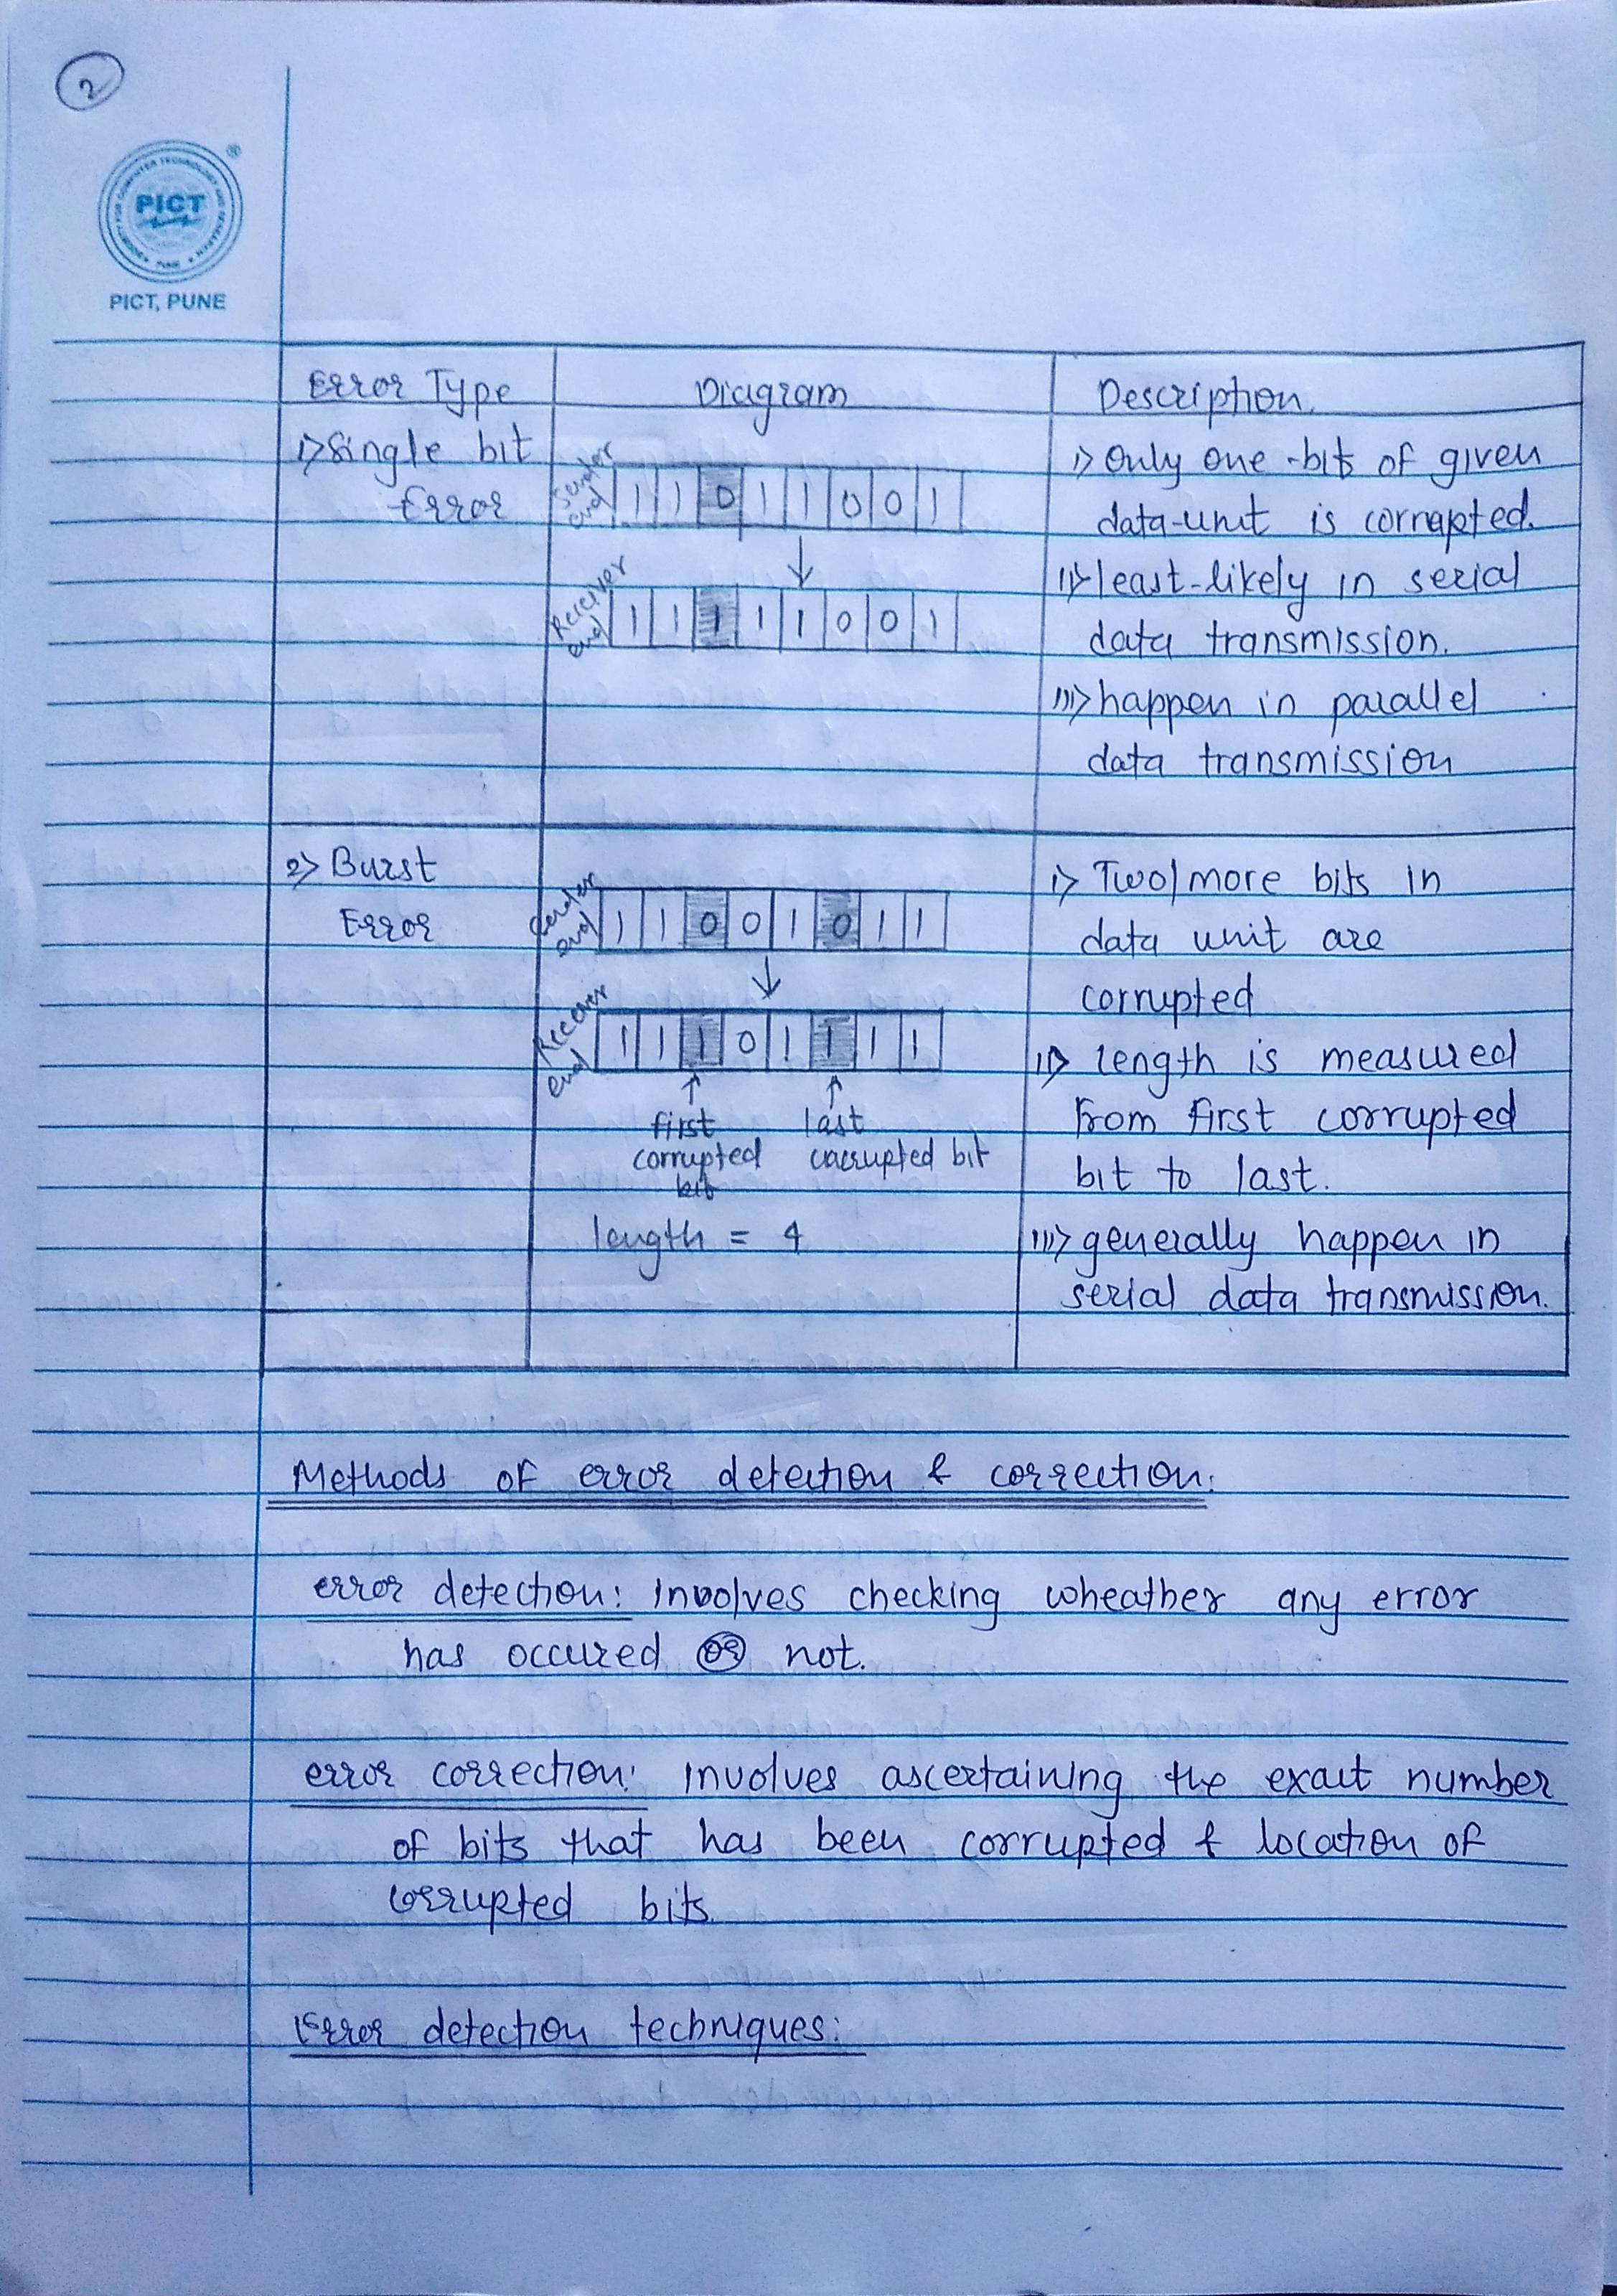 2
SOCIETY FOR COMPUTER TECHNOLOGY AND RESEARCH
PICT
PUNE
®
PICT, PUNE
Error Type
Diagram
Description.
1> Single bit
Error
Sender
end
1 1 0 1 1 0 0 1
Receiver
end
1 1 1 1 1 0 0 1
i> Only one-bit of given
data-unit is corrupted.
ii> least-likely in serial
data transmission.
iii> happen in parallel
data transmission
2> Burst
Error
Sender
end
1 1 0 0 1 0 1 1
Receiver
end
1 1 1 0 1 1 1 1
first
corrupted
bit
last
corrupted bit
length = 4
i> Two/more bits in
data unit are
corrupted
ii> length is measured
from first corrupted
bit to last.
iii> generally happen in
serial data transmission.
Methods of error detection & correction:
error detection: involves checking wheather any error
has occured or not.
error correction: involves ascertaining the exact number
of bits that has been corrupted & location of
corrupted bits.
Error detection techniques: